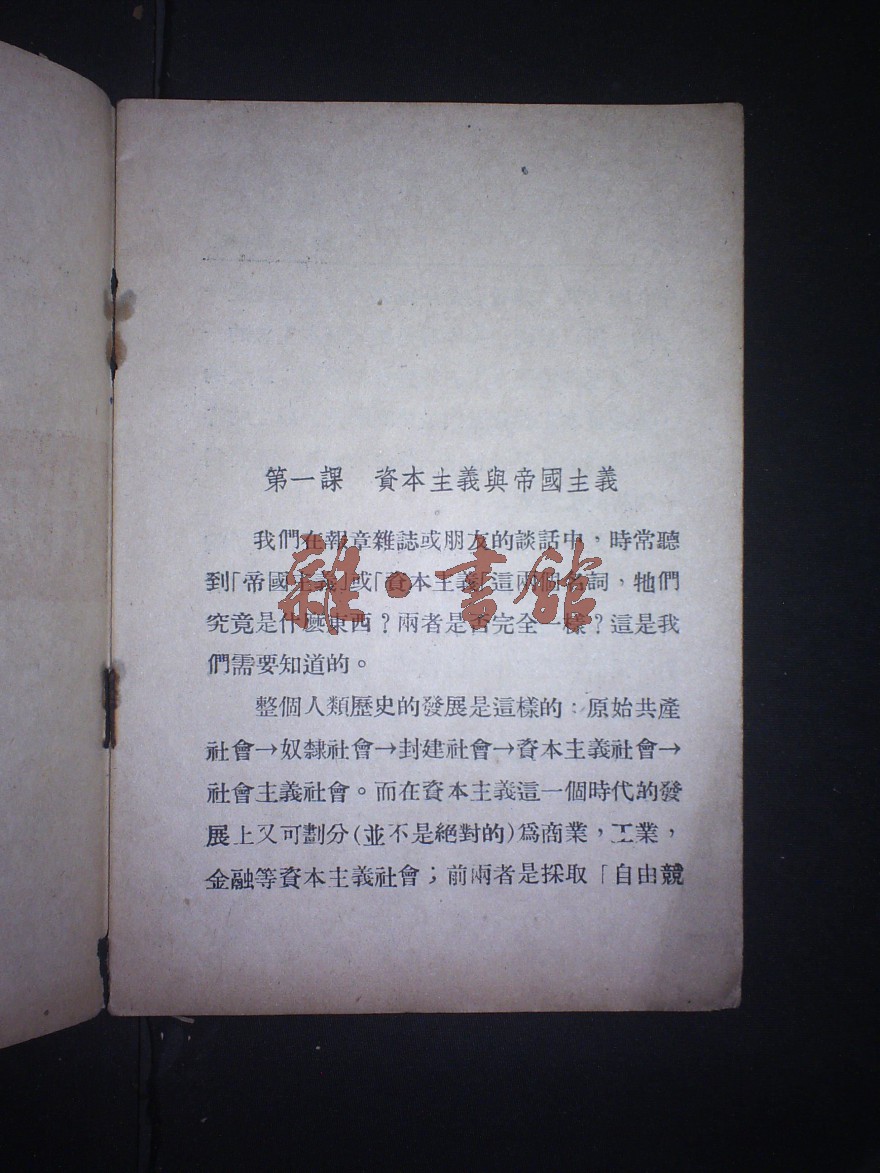 第一課　資本主義與帝國主義
我們在報章雜誌或朋友的談話中，時常聽
到「帝國主義」或「資本主義「這兩個名詞，牠們
究竟是什麼東西？兩者是否完全一樣？這是我
們需要知道的。
整個人類歷史的發展是這樣的：原始共產
社會→奴隸社會→封建社會→資本主義社會→
社會主義社會。而在資本主義這一個時代的發
展上又可劃分(並不是絕對的)為商業，工業，
金融等資本主義社會；前兩者是採取「自由競
雜·書館